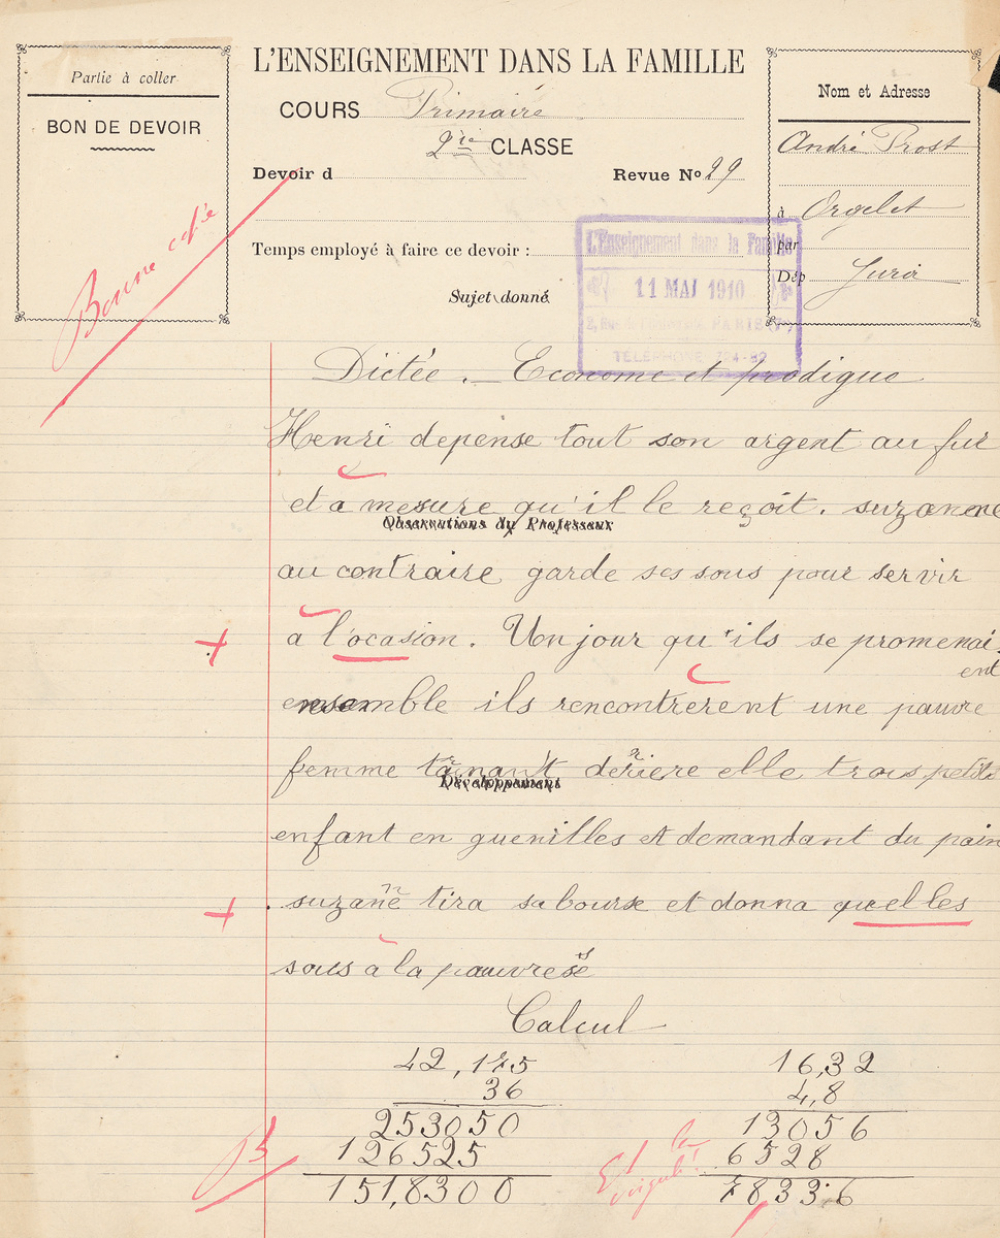 Partie à coller
BON DE DEVOIR
L'ENSEIGNEMENT DANS LA FAMILLE
COURS Primaire
2ie CLASSE
Devoir d
Revue No 29
Temps employé à faire ce devoir :
Sujet donné
Nom et Adresse
André Prost
à Orgelet
par
Dép Jura
Bonne copie
L'Enseignement dans la Famille
11 MAI 1910
PARIS (Ve)
TÉLÉPHONE
Dictée. — Econome et prodigue
Henri depense tout son argent au fur
et a mesure qu'il le reçoit. suzanne
Observations du Professeur
au contraire garde ses sous pour servir
a l'ocasion. Un jour qu'ils se promenai
ent
ensemble ils rencontrerent une pauvre
femme trainant derriere elle trois petits
Développement
enfant en guenilles et demandant du pain
. suzanne tira sa bourse et donna quelles
sous a la pauvresse
Calcul
42,175
36
253050
126525
151,8300
B
16,32
4,8
13056
6528
78336
Et la
virgule !